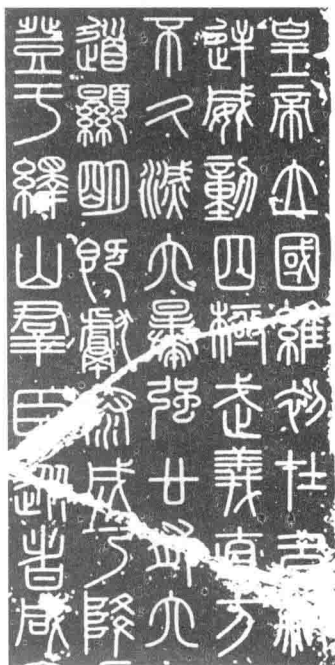 皇帝立國維初在昔嗣
逆威動四極武義直方
不久滅六暴强廿有六
道顯明既獻泰成乃降
登于繹山群臣從者咸